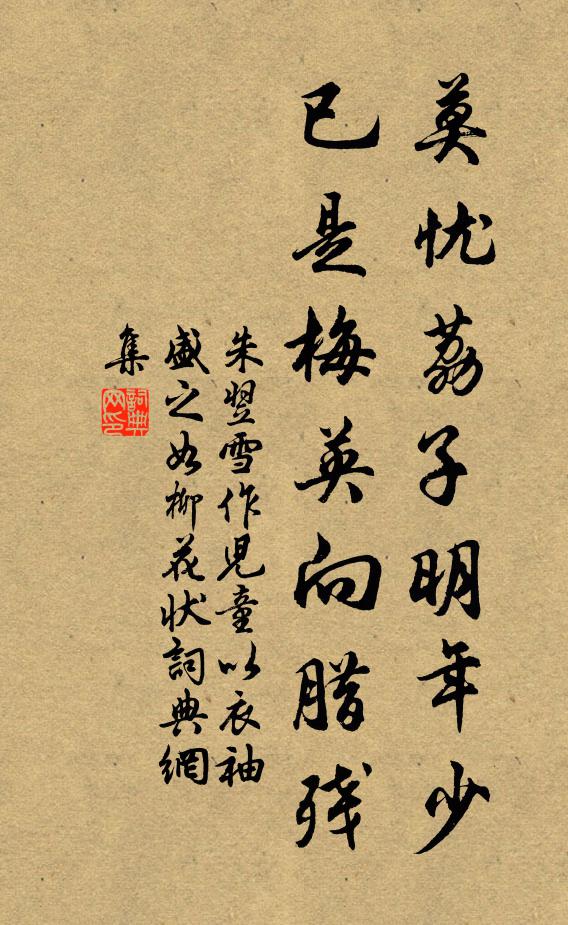 莫忧荔子明年少
已是梅英向腊残
朱翌雪作児童以衣袖
盛之如柳花状詞典網
集
詞典
网印